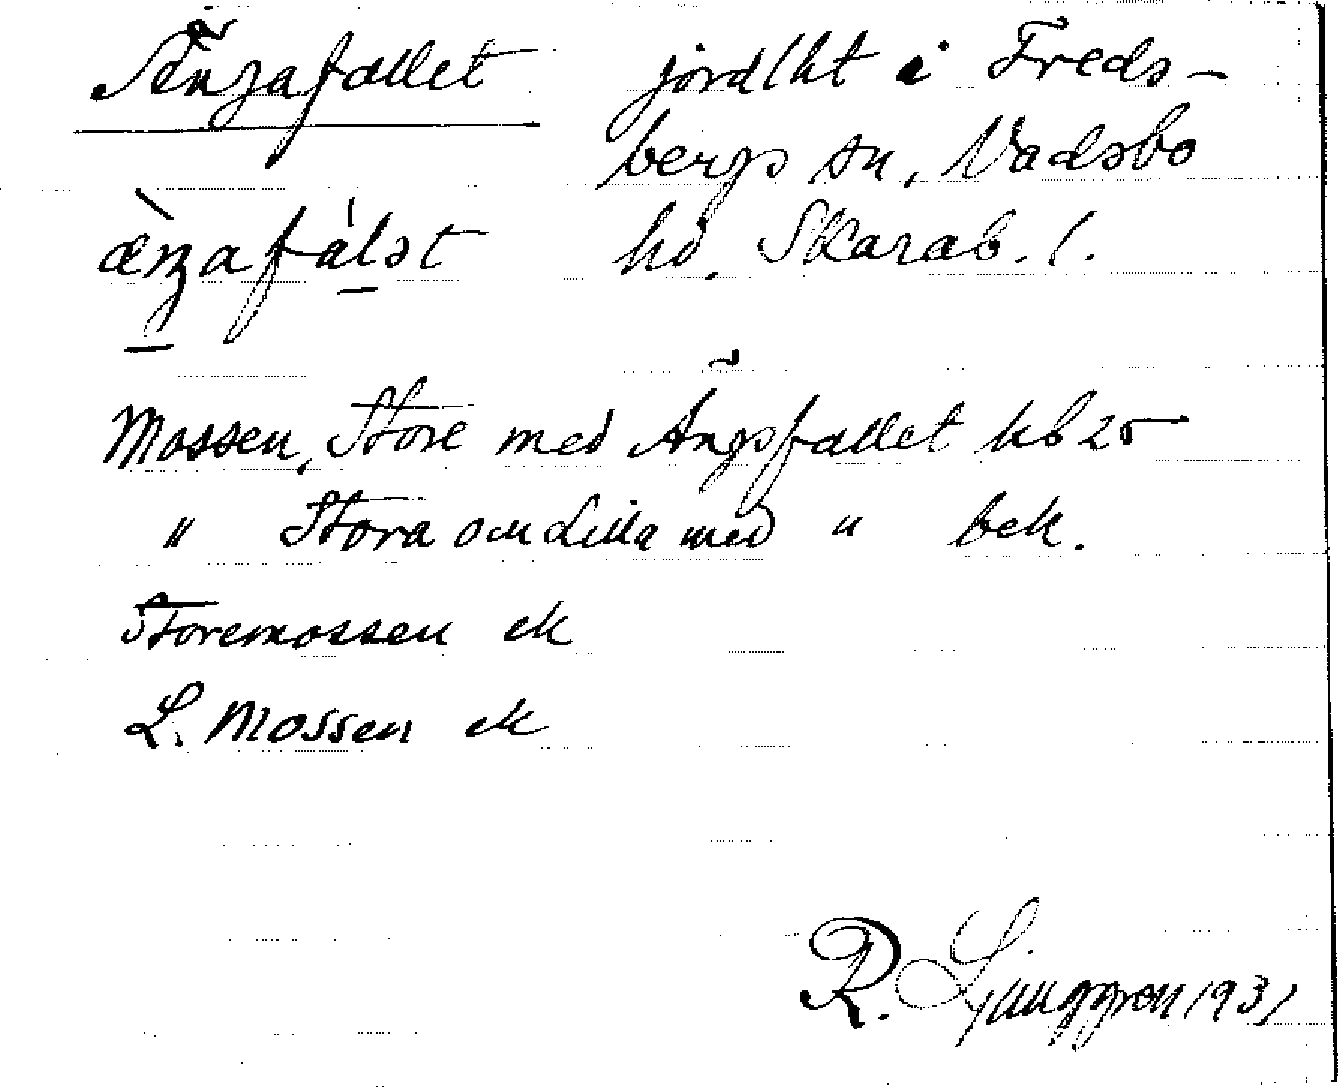 Ängafallet jordlht i Freds-
bergs sn, Vadsbo
æŋafalət hd. Skarab. l.
Mossen, Store med Ängsfallet hb 25
" Stora och Lilla med " bek.
Storemossen ek
L. Mossen ek
R. Ljunggren 1931